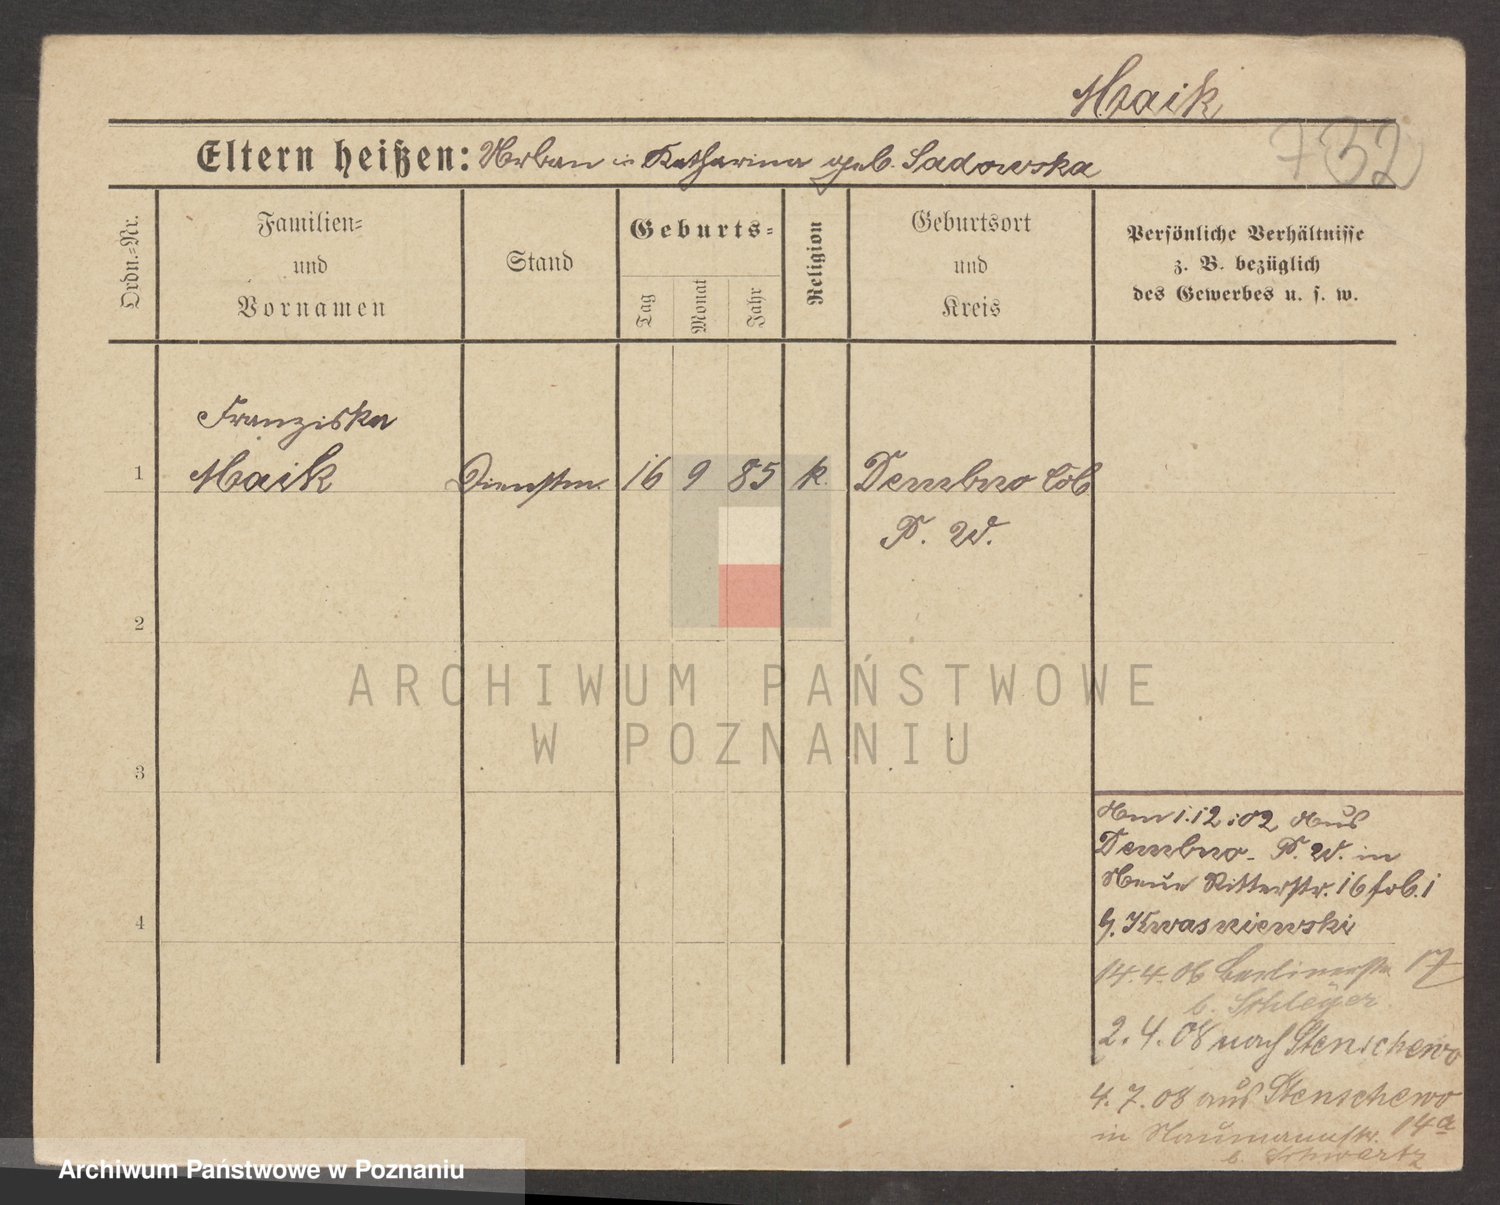 Maik
732
Eltern heißen: Urban u Katharina geb. Sadowska
Ordn.=Nr.
Familien=
und
Vornamen
Stand
Geburts=
Tag
Monat
Jahr
Religion
Geburtsort
und
Kreis
Persönliche Verhältnisse
z. B. bezüglich
des Gewerbes u. s. w.
Franziska
1 Maik Dienstm. 16 9 85 k. Dembno
P. W.
2
3
4
Am 1.12.02 Aus
Dembno. P. W. in
Neue Ritterstr. 16
Kwasniewski
14.4.06 Berlinerstr. 17
b. Schleyer
2.4.08 nach Stenschewo
4.7.08 aus Stenschewo
in Naumannstr. 14a
b. Schwertz
ARCHIWUM PAŃSTWOWE
W POZNANIU
Archiwum Państwowe w Poznaniu